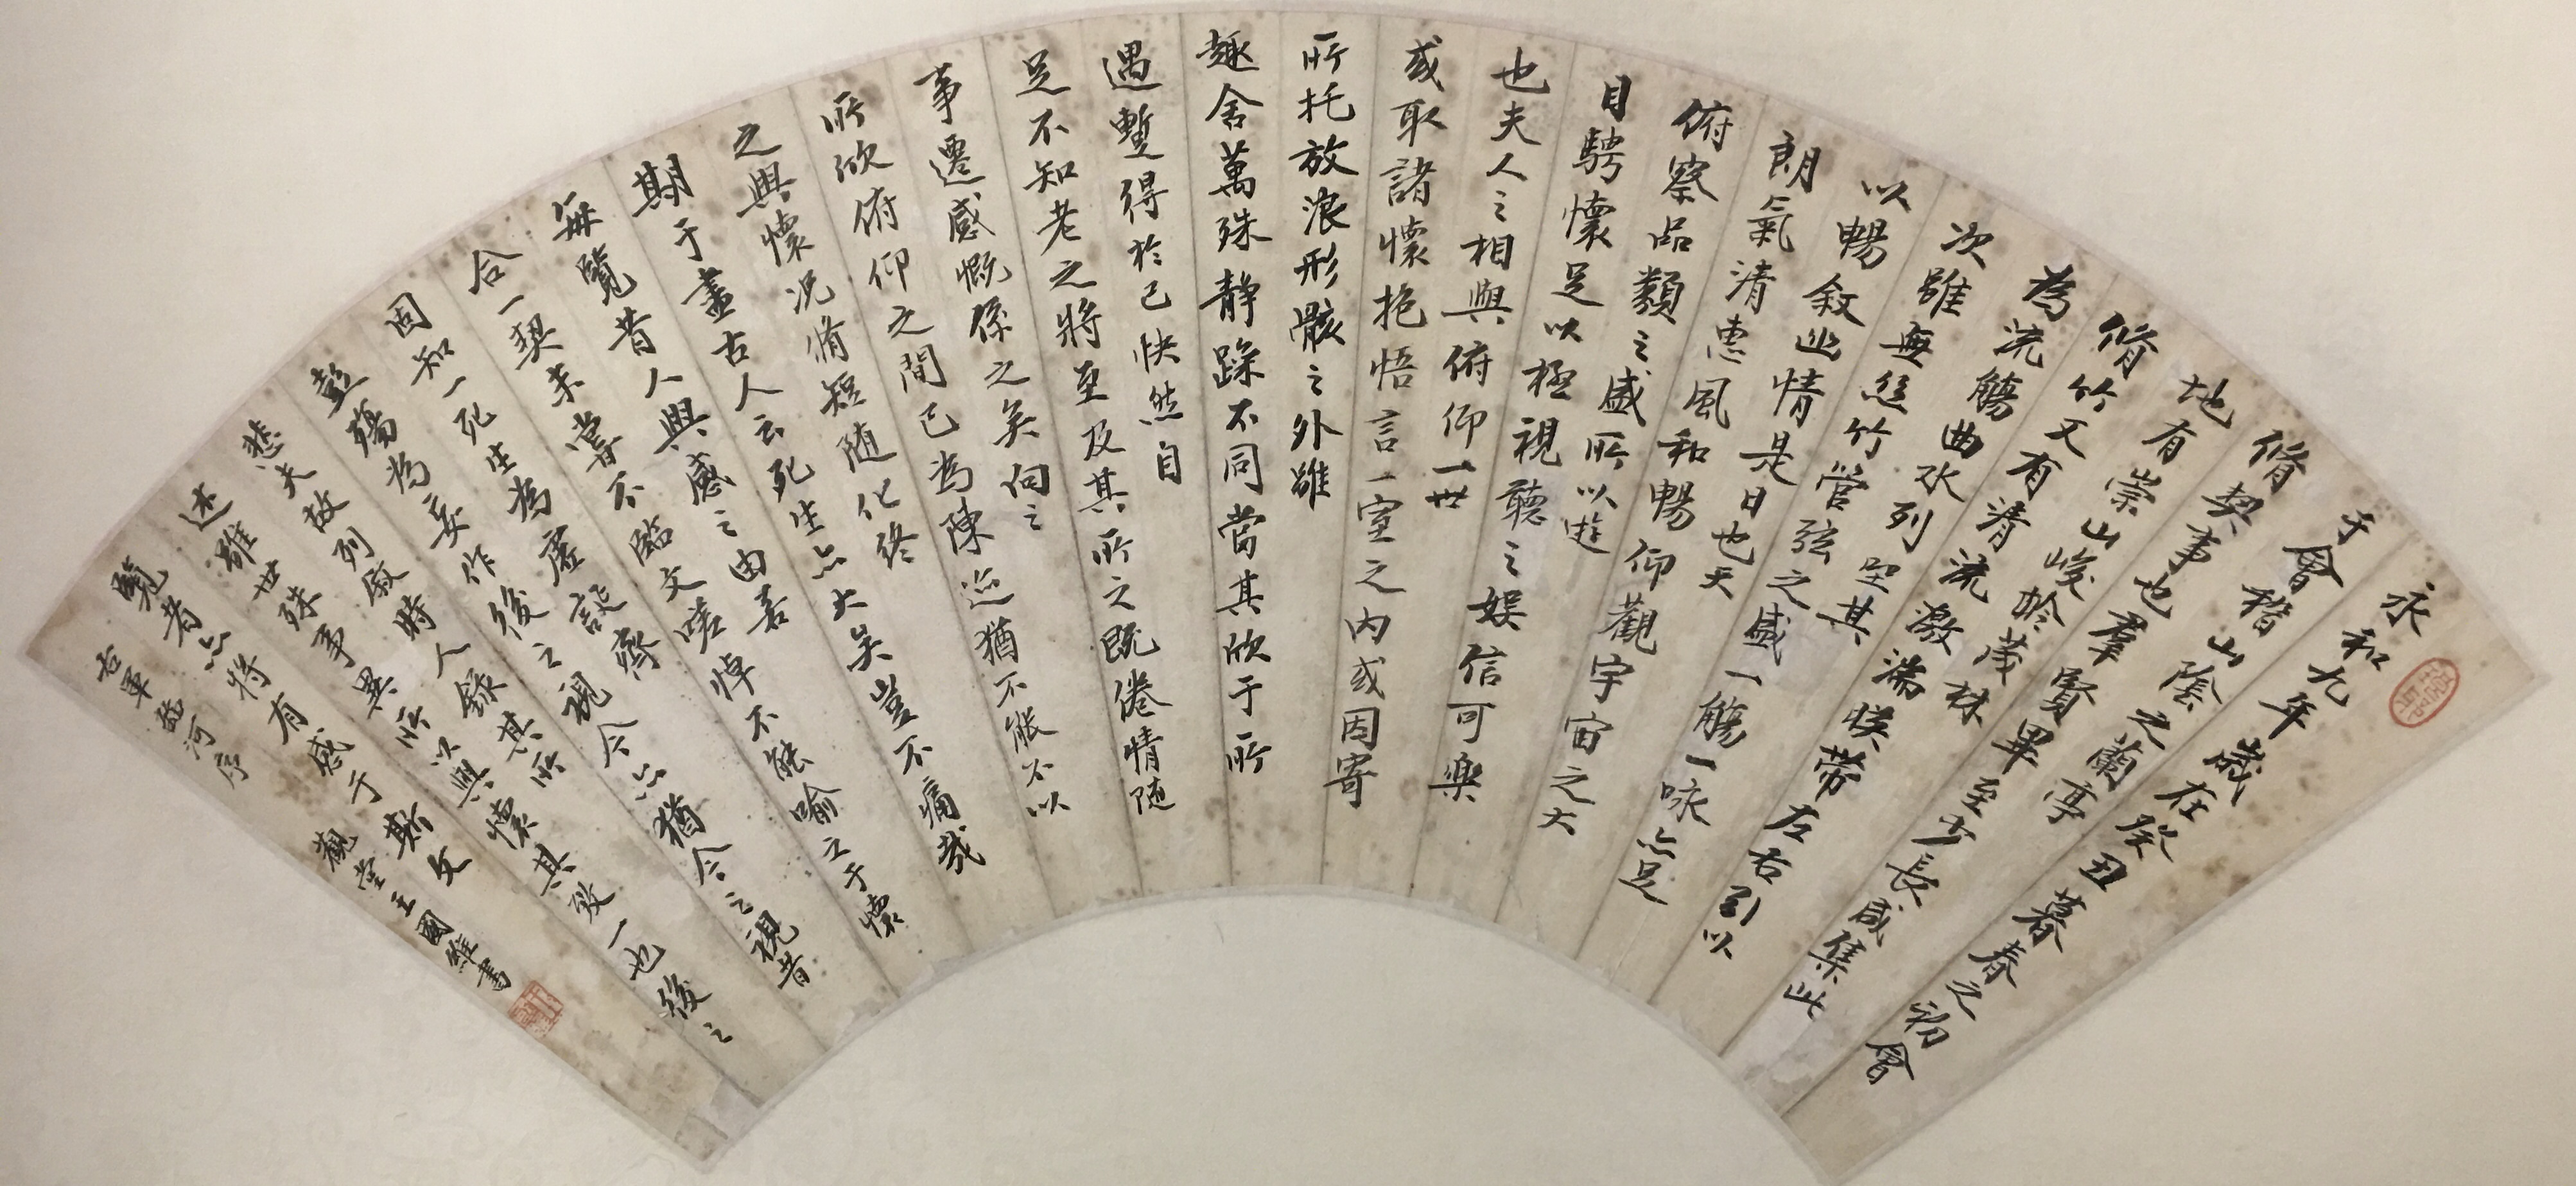 永和九年歲在癸丑暮春之初會
于會稽山陰之蘭亭
脩禊事也羣賢畢至少長咸集此
地有崇山峻岭茂林
脩竹又有清流激湍暎帶左右引以
為流觴曲水列坐其
次雖無絲竹管弦之盛一觴一咏亦足
以暢敘幽情是日也天
朗氣清惠風和暢仰觀宇宙之大
俯察品類之盛所以遊
目騁懷足以極視聽之娛信可樂
也夫人之相與俯仰一世
或取諸懷抱悟言一室之內或因寄
所托放浪形骸之外雖
趣舍萬殊靜躁不同當其欣于所
遇蹔得於己快然自
足不知老之將至及其所之既倦情隨
事遷感慨係之矣向之
所欣俯仰之間已為陳迹猶不能不以
之興懷況脩短隨化終
期于盡古人云死生亦大矣豈不痛哉
每覽昔人興感之由若
合一契未嘗不臨文嗟悼不能喻之于懷
固知一死生為虛誕齊
彭殤為妄作後之視今亦猶今之視昔
悲夫故列敘時人錄其所
述雖世殊事異所以興懷其致一也後之
覽者亦將有感于斯文
右軍臨河序
觀堂王國維書